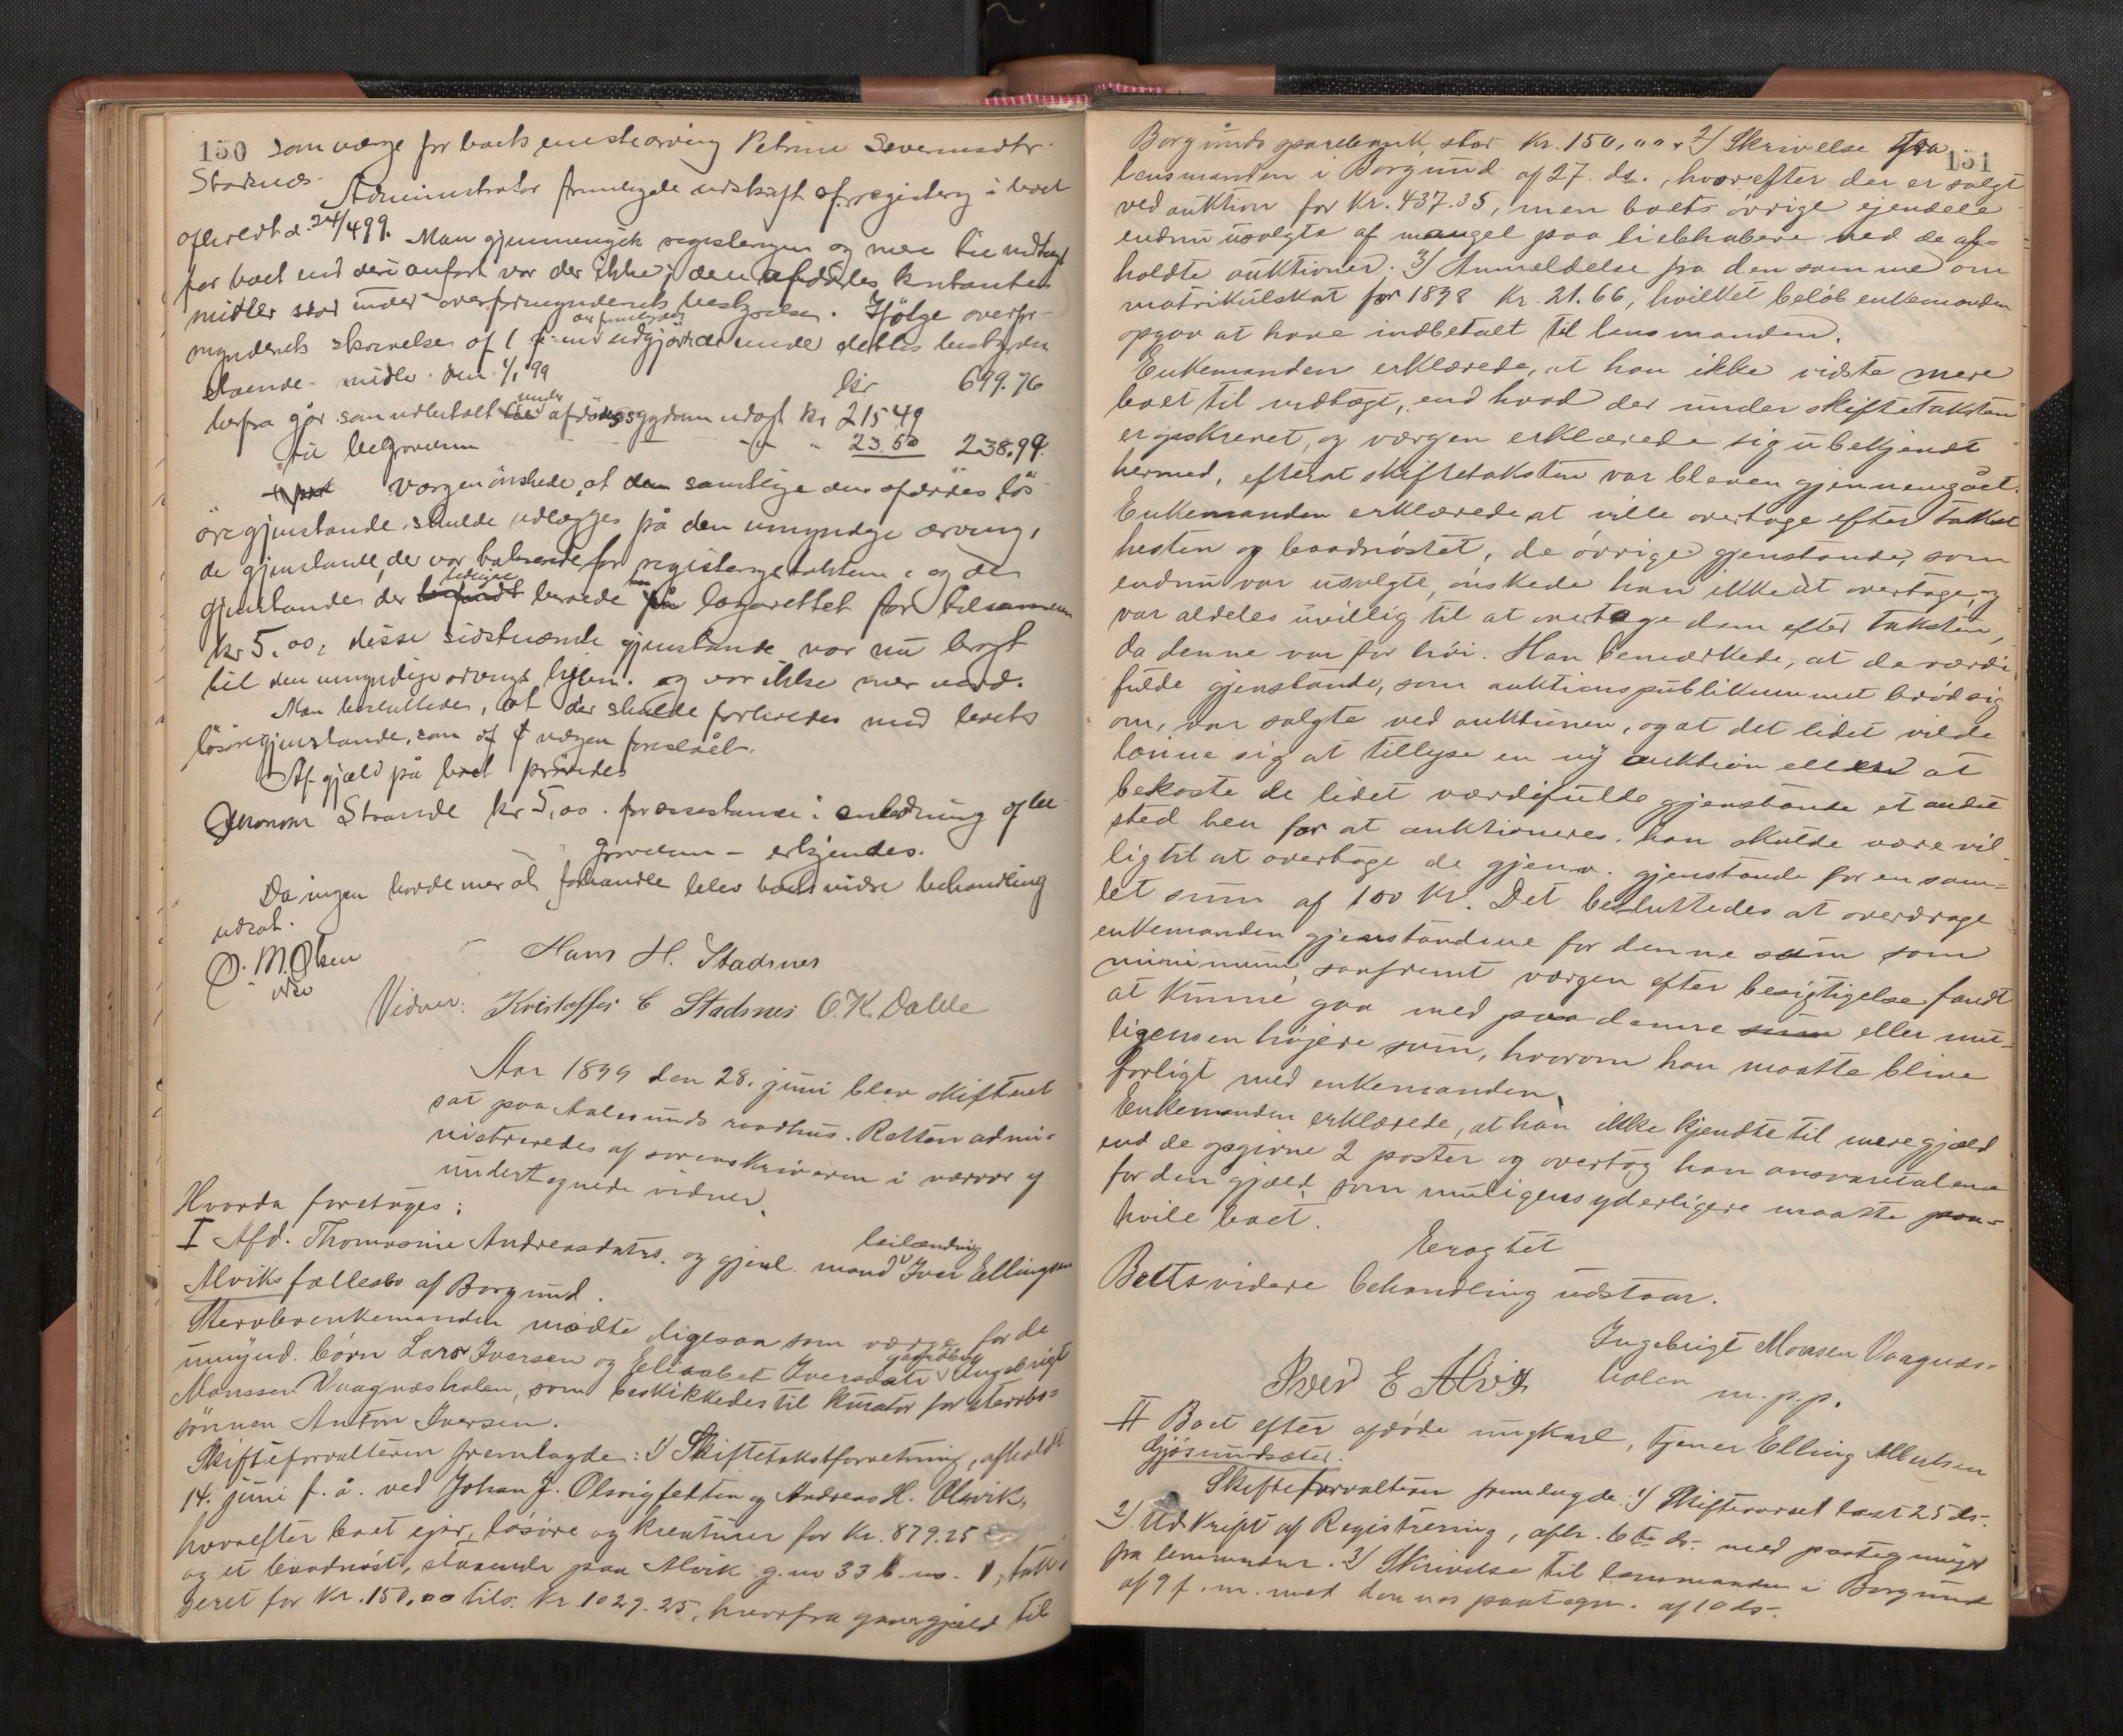 150 som værge for boets enestearving Petrine Severinsdtr.
Stadsnes.
Administrator fremlagde udskrift af registerg i boet
afholdt d. 24/4 99. Man gjennemgik registeringen og mer til indtægt
for boet end deri anført var der ikke; den afdødes kontante
midler stod under overformynderiets bestyrelse. Ifølge overfor-
mynderiets skrivelse af 1 udgjorde de under dettes bestyrelse
staaende midler den 1/1 99 kr 699.76
herfra går som udbetalt under afdødes sygdom udlagt kr 215 49
til begravelsen - " - " 23.50 238.99
Værgen ønskede, at samtlige den afdødes løs-
øregjenstande skulde udlægges på den umyndige arving,
de gjenstande, der var for registeringstaksten, og de
gjenstande der beroede på lazarettet for tilsammen
kr 5,00, disse sidstnævnte gjenstande var nu bragt
til den umyndige arvings hjem og var ikke mer værd.
Man besluttedes, at der skulde forholdes med boets
løsøregjenstande, som af værgen foreslået.
Af gjæld på boet prøvedes
Strande kr 5,00 for assistance i anledning af be-
gravelsen - erkjendes.
Da ingen havde mer at forhandle blev boets videre behandling
udsat.
O. M. Olsen Hans H. Stadsnes
Vidner: Kristoffer C Stadsnes O. K. Dahle
Aar 1899 den 28. juni blev skifteret
sat paa Aalesunds raadhus. Retten admi-
nistreredes af sorenskriveren i nærvær af
undertegnede vidner.
Hvorda foretoges:
I Afd. Thomasine Andreasdatrs. og gjenl. mand leilænding Iver Ellingsen
Alviks fællesbo af Borgund.
Stervboenkemanden mødte ligesaa som værge for de
umynd. børn Lars Iversen og Elisabet Iversdatr gaardbrg Ingebrigt
Monssen Vaagnæsholen, som beskikkedes til kurator for stervbo-
sønnen Anton Iversen.
Skifteforvalteren fremlagde: 1) Skiftetakstforretning, afholdt
14. juni f. å. ved Johan J. Olsvigfeltin og Andreas H. Olsvik,
hvorefter boet ejer, løsøre og kreaturer for Kr. 879.25
og et baadnøst, staaende paa Alvik g. no 33 b. no. 1, tak-
seret for Kr. 150,00 tils. Kr. 1029.25, hvorfra gaar gjæld til
151
Borgunds sparebank, stor Kr. 150,00, 2) Skrivelse fra
lensmanden i Borgund af 27. ds., hvorefter der er solgt
ved auktion for Kr. 437.35, men boets øvrige ejendele
endnu usolgte af mangel paa liebhabere ved de af-
holdte auktioner. 3) Anmeldelse fra den samme om
matrikulskat for 1898 Kr. 21.66, hvilket beløb enkemanden
opgav at have indbetalt til lensmanden.
Enkemanden erklærede, at han ikke vidste mere
boet til indtægt, end hvad der under skiftetaksten
er opskrevet, og værgen erklærede sig ubekjendt
hermed, efterat skiftetaksten var bleven gjennemgået.
Enkemanden erklærede at ville overtage efter takst
hesten og baadnøstet, de øvrige gjenstande, som
endnu var usolgte, ønskede han ikke at overtage, og
var aldeles uvillig til at overtage dem efter taksten,
da denne var for høi. Han bemærkede, at de værdi-
fulde gjenstande, som auktionspublikummet brød sig
om, var solgte ved auktionen, og at det lidet vilde
lønne sig at tillyse en ny auktion eller at
bekoste de lidet værdifulde gjenstande et andet
sted hen for at auktioneres. han skulde være vil-
lig til at overtage de gjenv. gjenstande for en sam-
let sum af 100 Kr. Det besluttedes at overdrage
enkemanden gjenstandene for denne sum som
minimum, saafremt værgen efter besigtigelse fandt
at kunne gaa med paa denne sum eller mu-
ligens en højere sum, hvorom han maatte blive
forligt med enkemanden.
Enkemanden erklærede, at han ikke kjendte til mere gjæld
end de opgivne 2 poster og overtog han ansvaret alene
for den gjæld, som muligens yderligere maatte paa-
hvile boet.
Eragtet
Boets videre behandling udstaar.
Ingebrigt Monsen Vaagnæs-
Iver E Alvik holen m. p. p.
II Boet efter afdøde ungkarl, tjener Elling Albertsen
Gjøsundsæter.
Skifteforvalteren fremlagde: 1) Skiftevarsel læst 25 ds.
2) Udskript af Registrering, afh. 6te ds. med paategning
fra lensmanden. 3) Skrivelse til lensmanden i Borgund
af 9 f. m. med dennes paategn. af 10 ds.